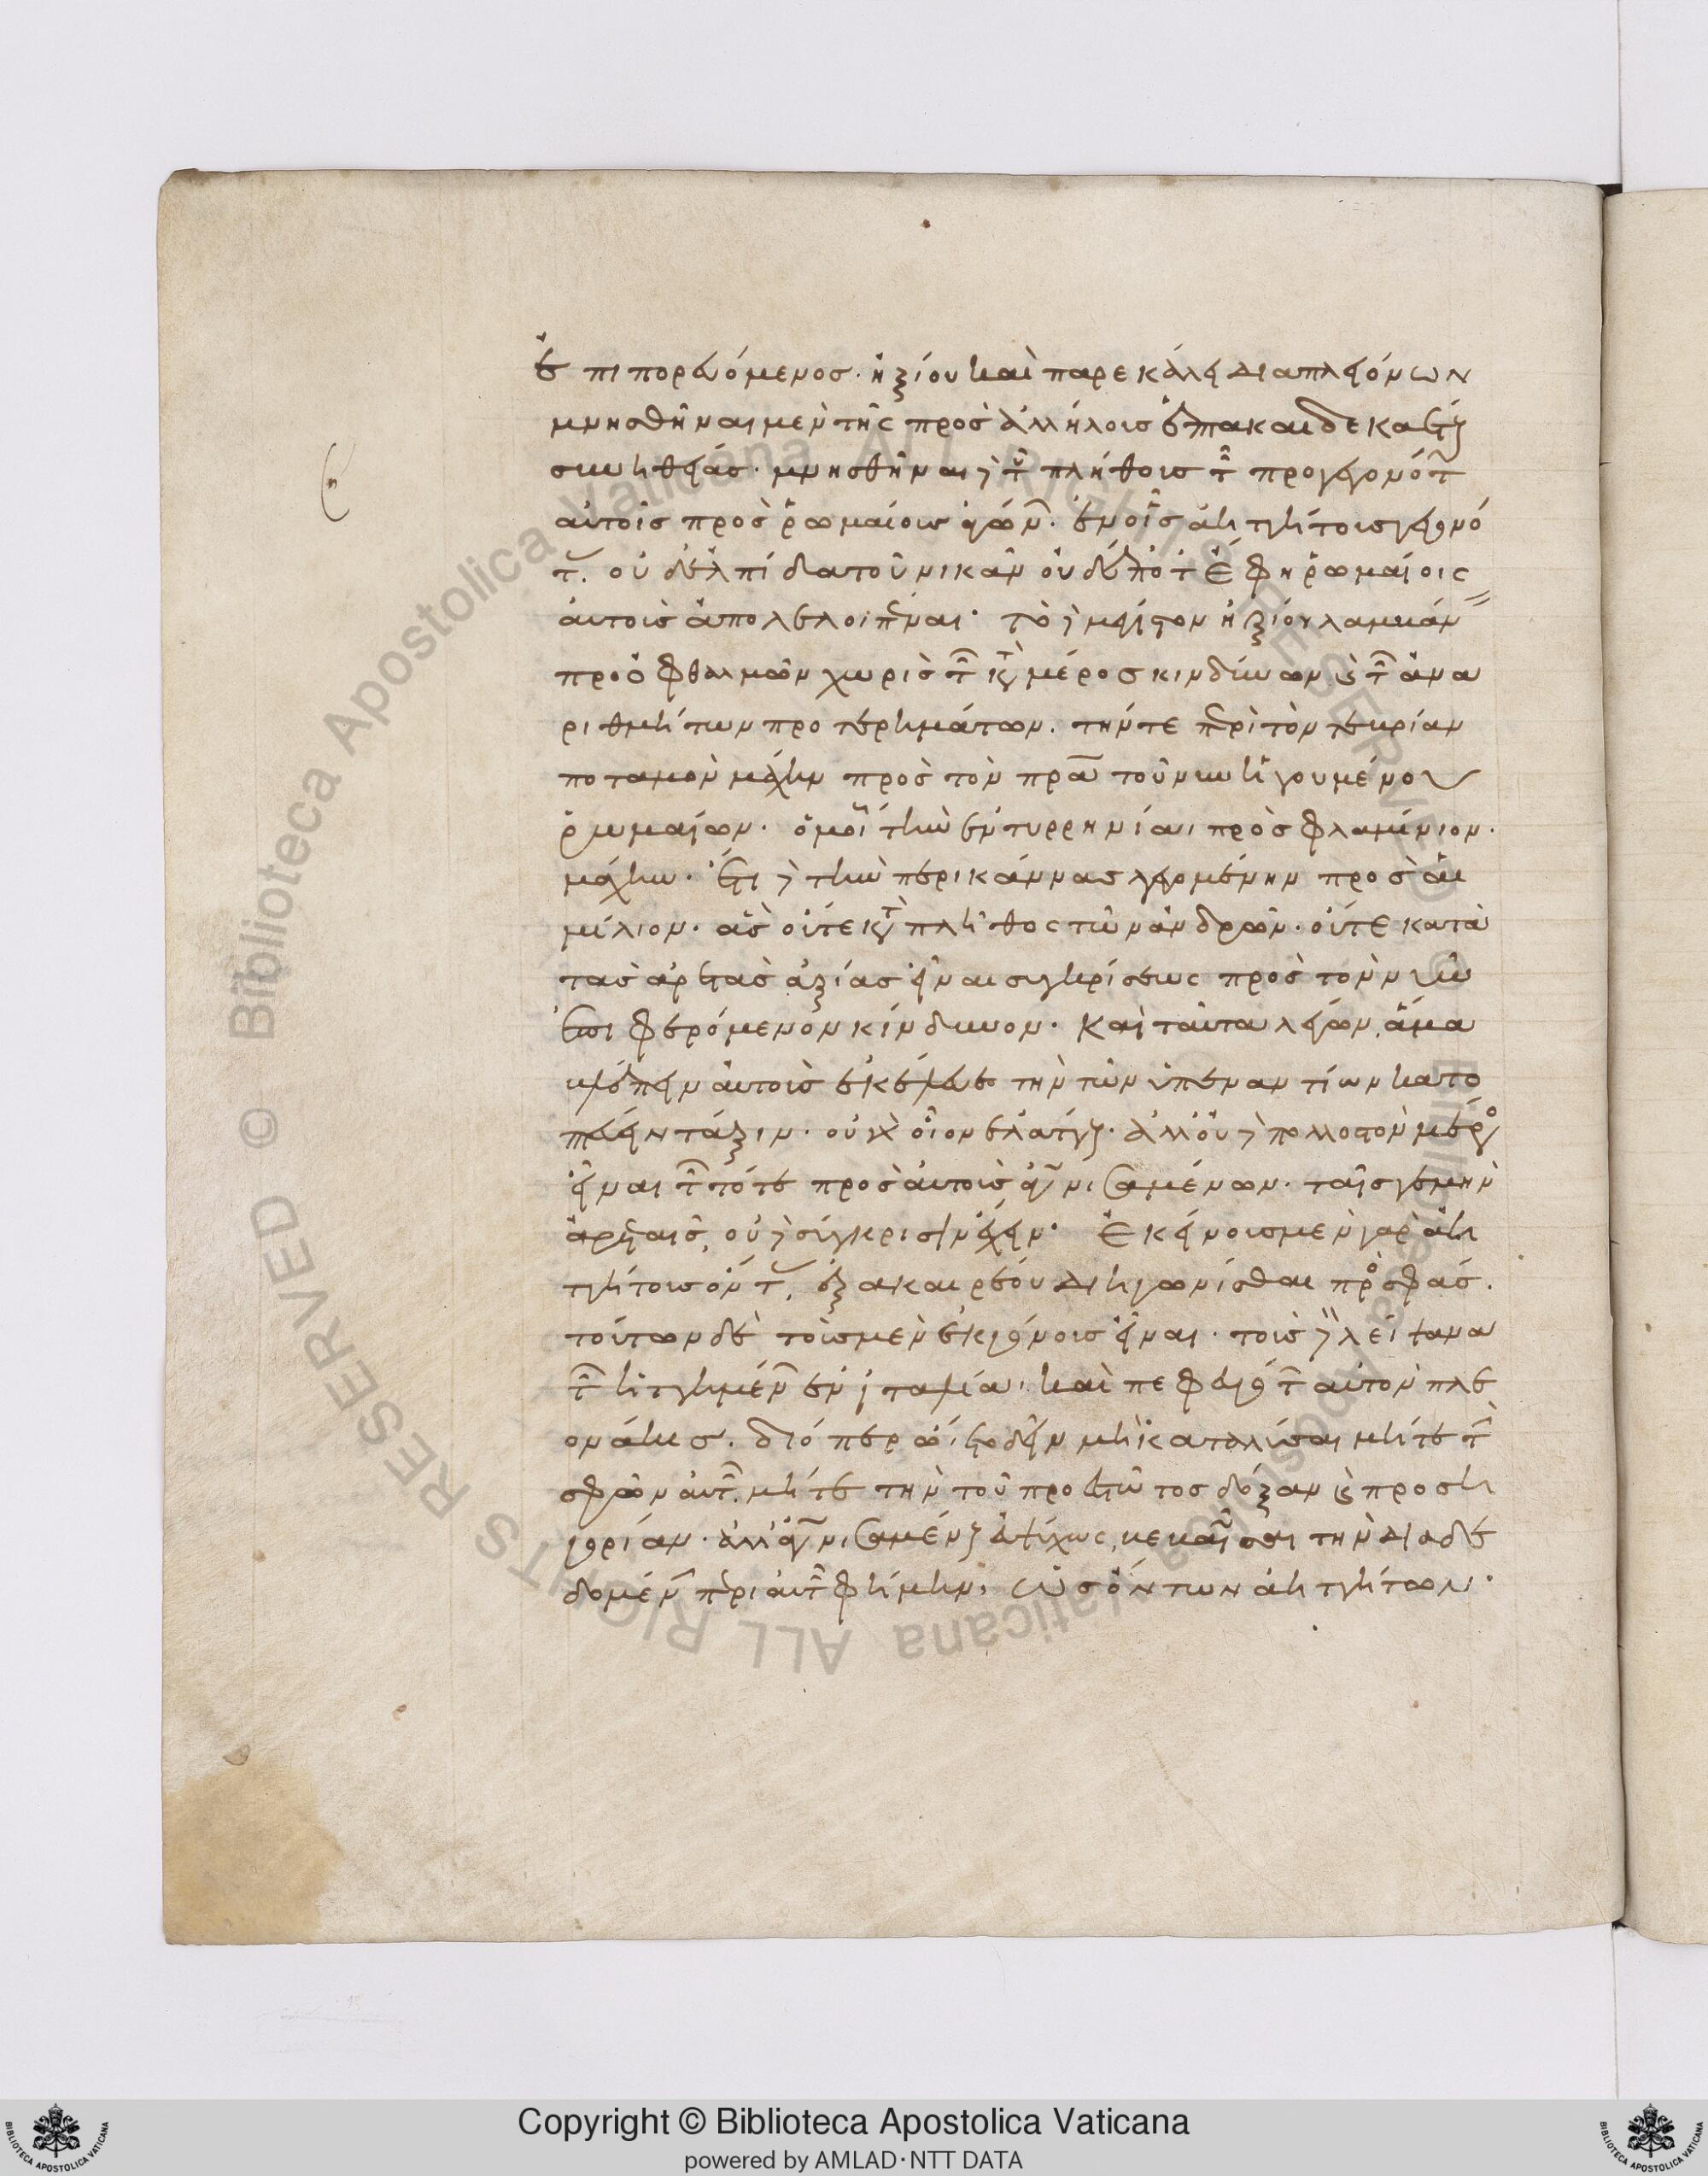 ἐπιπορευόμενος. ἠξίου καὶ παρεκάλει διαπλειόνων
μνησθῆναι μὲν τῆς πρὸς ἀλλήλους ἑπτακαιδεκαετοῦς
συνηθείας. μνησθῆναι δὲ τοῦ πλήθους τῶν προγεγονότων
αὐτοῖς πρὸς ῥωμαίους ἀγώνων. ἐν οἷς ἀηττήτους γεγονό
τας. οὐδ' ἐλπίδα τοῦ νικᾶν οὐδέποτ' ἔφη ῥωμαίοις
αὐτοὺς ἀπολελοιπέναι. τὸ δὲ μέγιστον ἠξίου λαμβάνειν
προὀφθαλμῶν χωρὶς τῶν κατὰ μέρος κινδύνων καὶ τῶν ἀνα
ριθμήτων προτερημάτων. τήν τε περὶ τὸν
ποταμὸν μάχην πρὸς τὸν πρα τοῦ νῦν ἡγουμένου
ῥωμαίων. ὁμοίως τὴν ἐν τυρρηνίαι πρὸς φλαμίνιον.
μάχην. ἔτι δὲ τὴν περὶ κάννας γενομένην πρὸς αἰ
μίλιον. ἃς οὔτε κατὰ πλῆθος τῶν ἀνδρῶν. οὔτε κατὰ
τὰς ἀρετὰς ἀξίας εἶναι συγκρίσεως πρὸς τὸν νῦν
ἐπιφερόμενον κίνδυνον. Καὶ ταῦτα λέγων, ἅμα
βλέπειν αὐτοὺς ἐκέλευε τὴν τῶν ὑπεναντίων κατο
πτεύειν τάξιν. οὐχ οἷον ἐλάττους. ἀλλ' οὐδὲ πολλοστὸν μέρος
εἶναι τῶν τότε πρὸς αὐτοὺς ἀγωνισαμένων. ταῖς γε μὴν
ἀρεταῖς, οὐδὲ σύγκρισιν ἔχειν. Ἐκείνους μὲν γὰρ ἀη
ττήτους ὄντας, ἐξακαιρέου διηγωνίσθαι πρὸς σφᾶς.
τούτων δὲ τοὺς μὲν ἐκγόνους εἶναι. τοὺς δὲ λείψανα
τῶν ἡττημένων ἐν ἰταλίαι. καὶ πεφευγότων αὐτὸν πλε
ονάκις. διόπερ ὤιετο δεῖν μὴ καταλῦσαι μήτε τὴν
σφῶν αὐτῶν. μήτε τὴν τοῦ προεστῶτος δόξαν καὶ προση
γορίαν. ἀλλ' ἀγωνισαμένους εὐψύχως, βεβαιῶσαι τὴν διαδε
δομένην περὶ αὐτῶν φήμην, ὡς ὄντων ἀηττήτων.
Copyright © Biblioteca Apostolica Vaticana
powered by AMLAD·NTT DATA